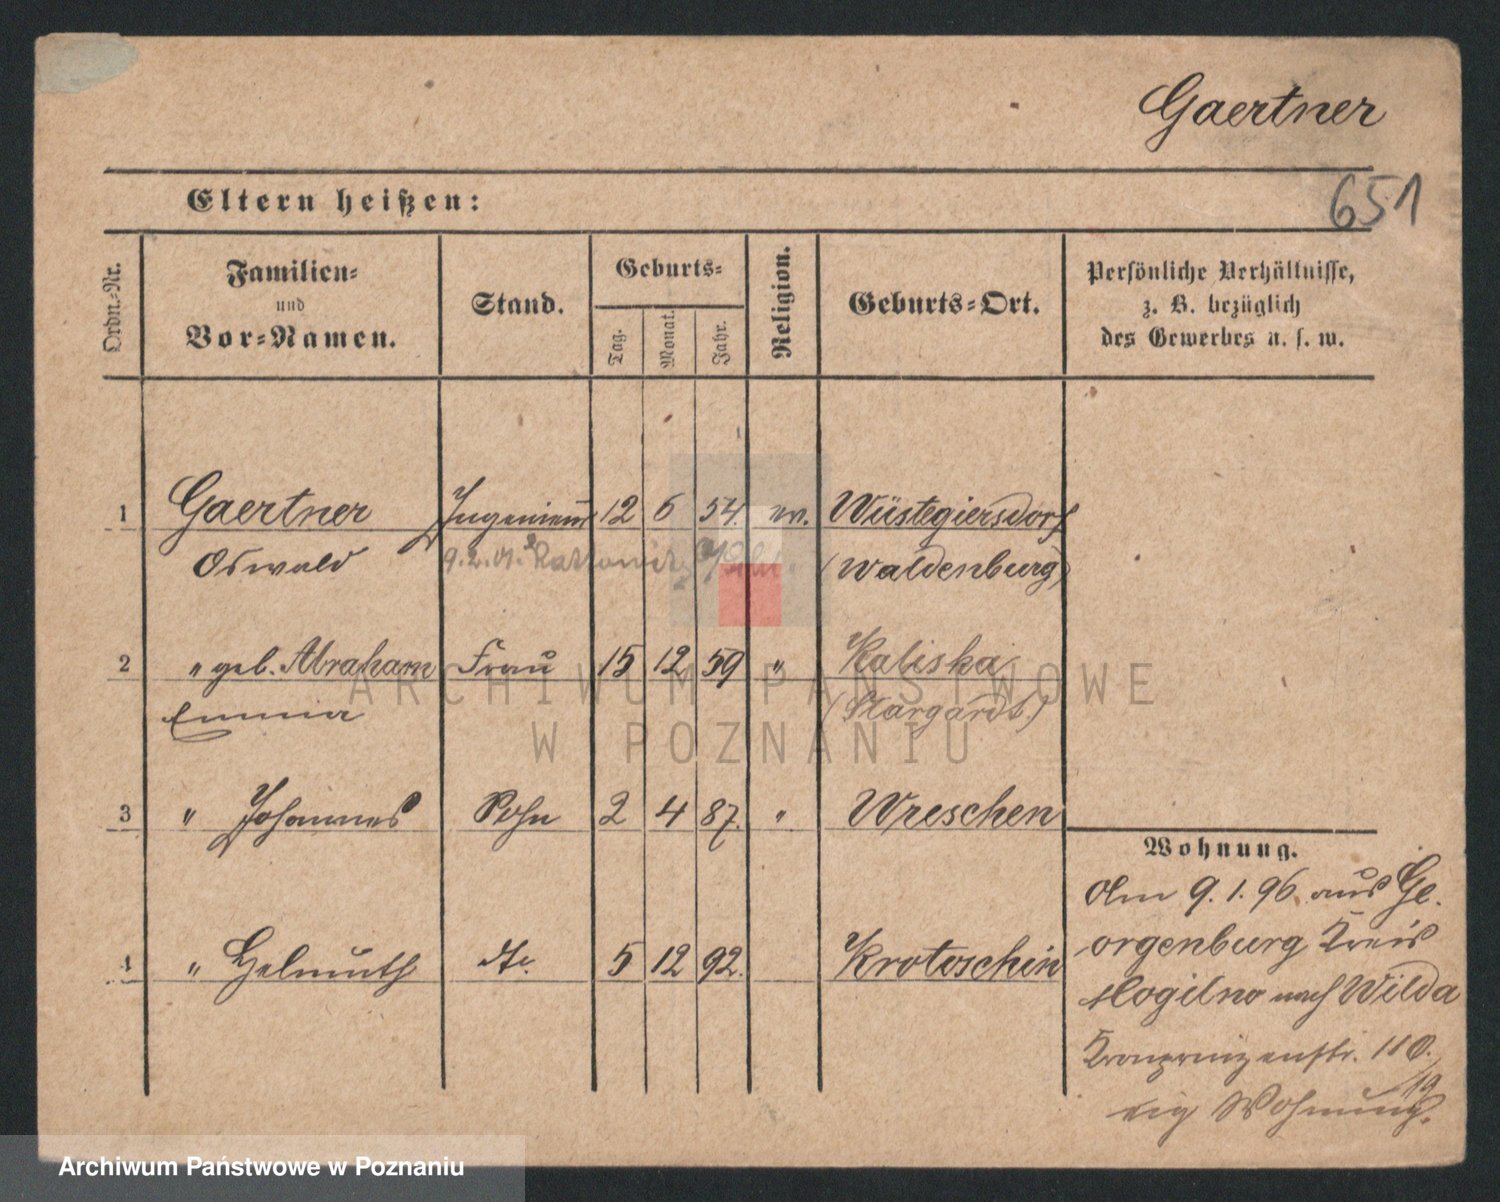 Gaertner
651
Eltern heißen:
Ordn.-Nr.
Familien-
und
Vor-Namen.
Stand.
Geburts-
Tag.
Monat.
Jahr.
Religion.
Geburts-Ort.
Persönliche Verhältnisse,
z. B. bezüglich
des Gewerbes u. s. w.
1 Gaertner Ingenieur 12 6 54. ev. Wüstegiersdorf
Oswald 9.2.01. Kattowitz (Waldenburg)
2 " geb. Abraham Frau 15 12 59 " Kaliska
Emma (Stargardt.)
3 " Johannes Sohn 2 4 87. " Wreschen
4 " Helmuth dto. 5 12 92. Krotoschin
Wohnung.
Am 9.1.96. aus Ge-
orgenburg Kreis
Mogilno nach Wilda
Kronprinzenstr. 110.
19
eig Wohnung.
ARCHIWUM PAŃSTWOWE
W POZNANIU
Archiwum Państwowe w Poznaniu